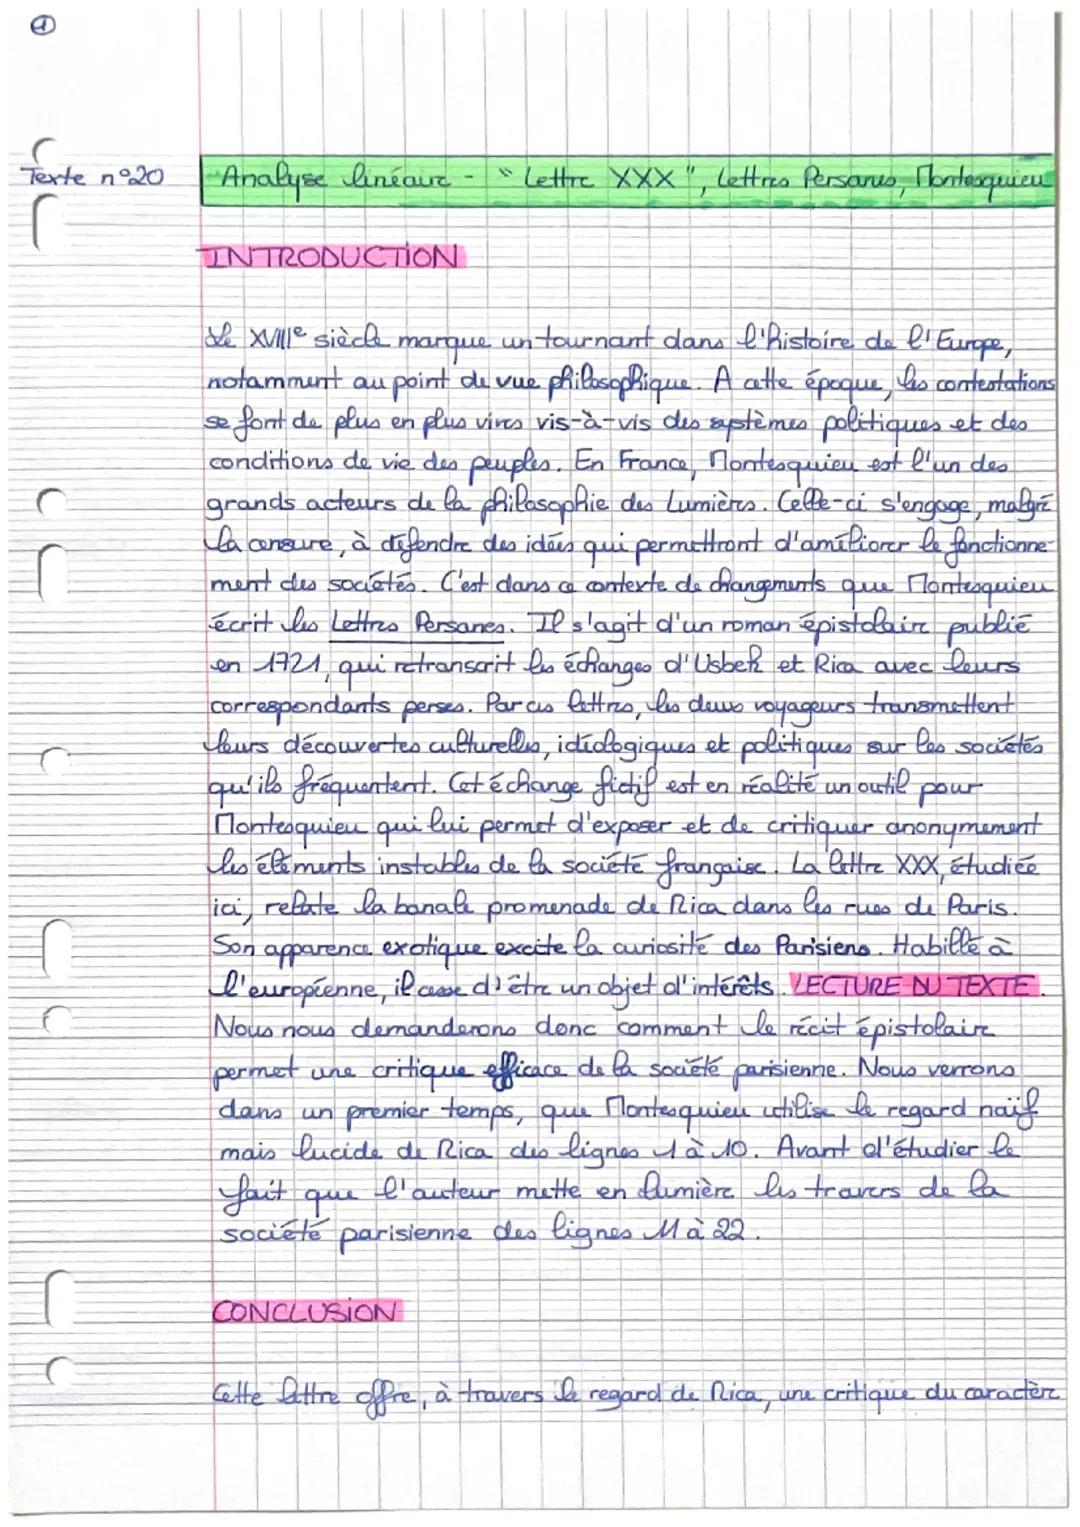 1
Texte n°20
Analyse linéaire - "Lettre XXX", Lettres Persanes, Montesquieu
INTRODUCTION
Le XVIIIe siècle marque un tournant dans l'histoire de l'Europe,
notamment au point de vue philosophique. A cette époque, les contestations
se font de plus en plus vives vis-à-vis des systèmes politiques et des
conditions de vie des peuples. En France, Montesquieu est l'un des
grands acteurs de la philosophie des Lumières. Celle-ci s'engage, malgré
la censure, à défendre des idées qui permettront d'améliorer le fonctionne-
ment des sociétés. C'est dans ce contexte de changements que Montesquieu
écrit les Lettres Persanes. Il s'agit d'un roman épistolaire publié
en 1721, qui retranscrit les échanges d'Usbek et Rica avec leurs
correspondants perses. Par ces lettres, les deux voyageurs transmettent
leurs découvertes culturelles, idéologiques et politiques sur les sociétés
qu'ils fréquentent. Cet échange fictif est en réalité un outil pour
Montesquieu qui lui permet d'exposer et de critiquer anonymement
les éléments instables de la société française. La lettre XXX, étudiée
ici, relate la banale promenade de Rica dans les rues de Paris.
Son apparence exotique excite la curiosité des Parisiens. Habillé à
l'européenne, il cesse d'être un objet d'intérêts. LECTURE DU TEXTE.
Nous nous demanderons donc comment le récit épistolaire
permet une critique efficace de la société parisienne. Nous verrons
dans un premier temps, que Montesquieu utilise le regard naïf
mais lucide de Rica des lignes 1 à 10. Avant d'étudier le
fait que l'auteur mette en lumière les travers de la
société parisienne des lignes 11 à 22.
CONCLUSION
Cette lettre offre, à travers le regard de Rica, une critique du caractère